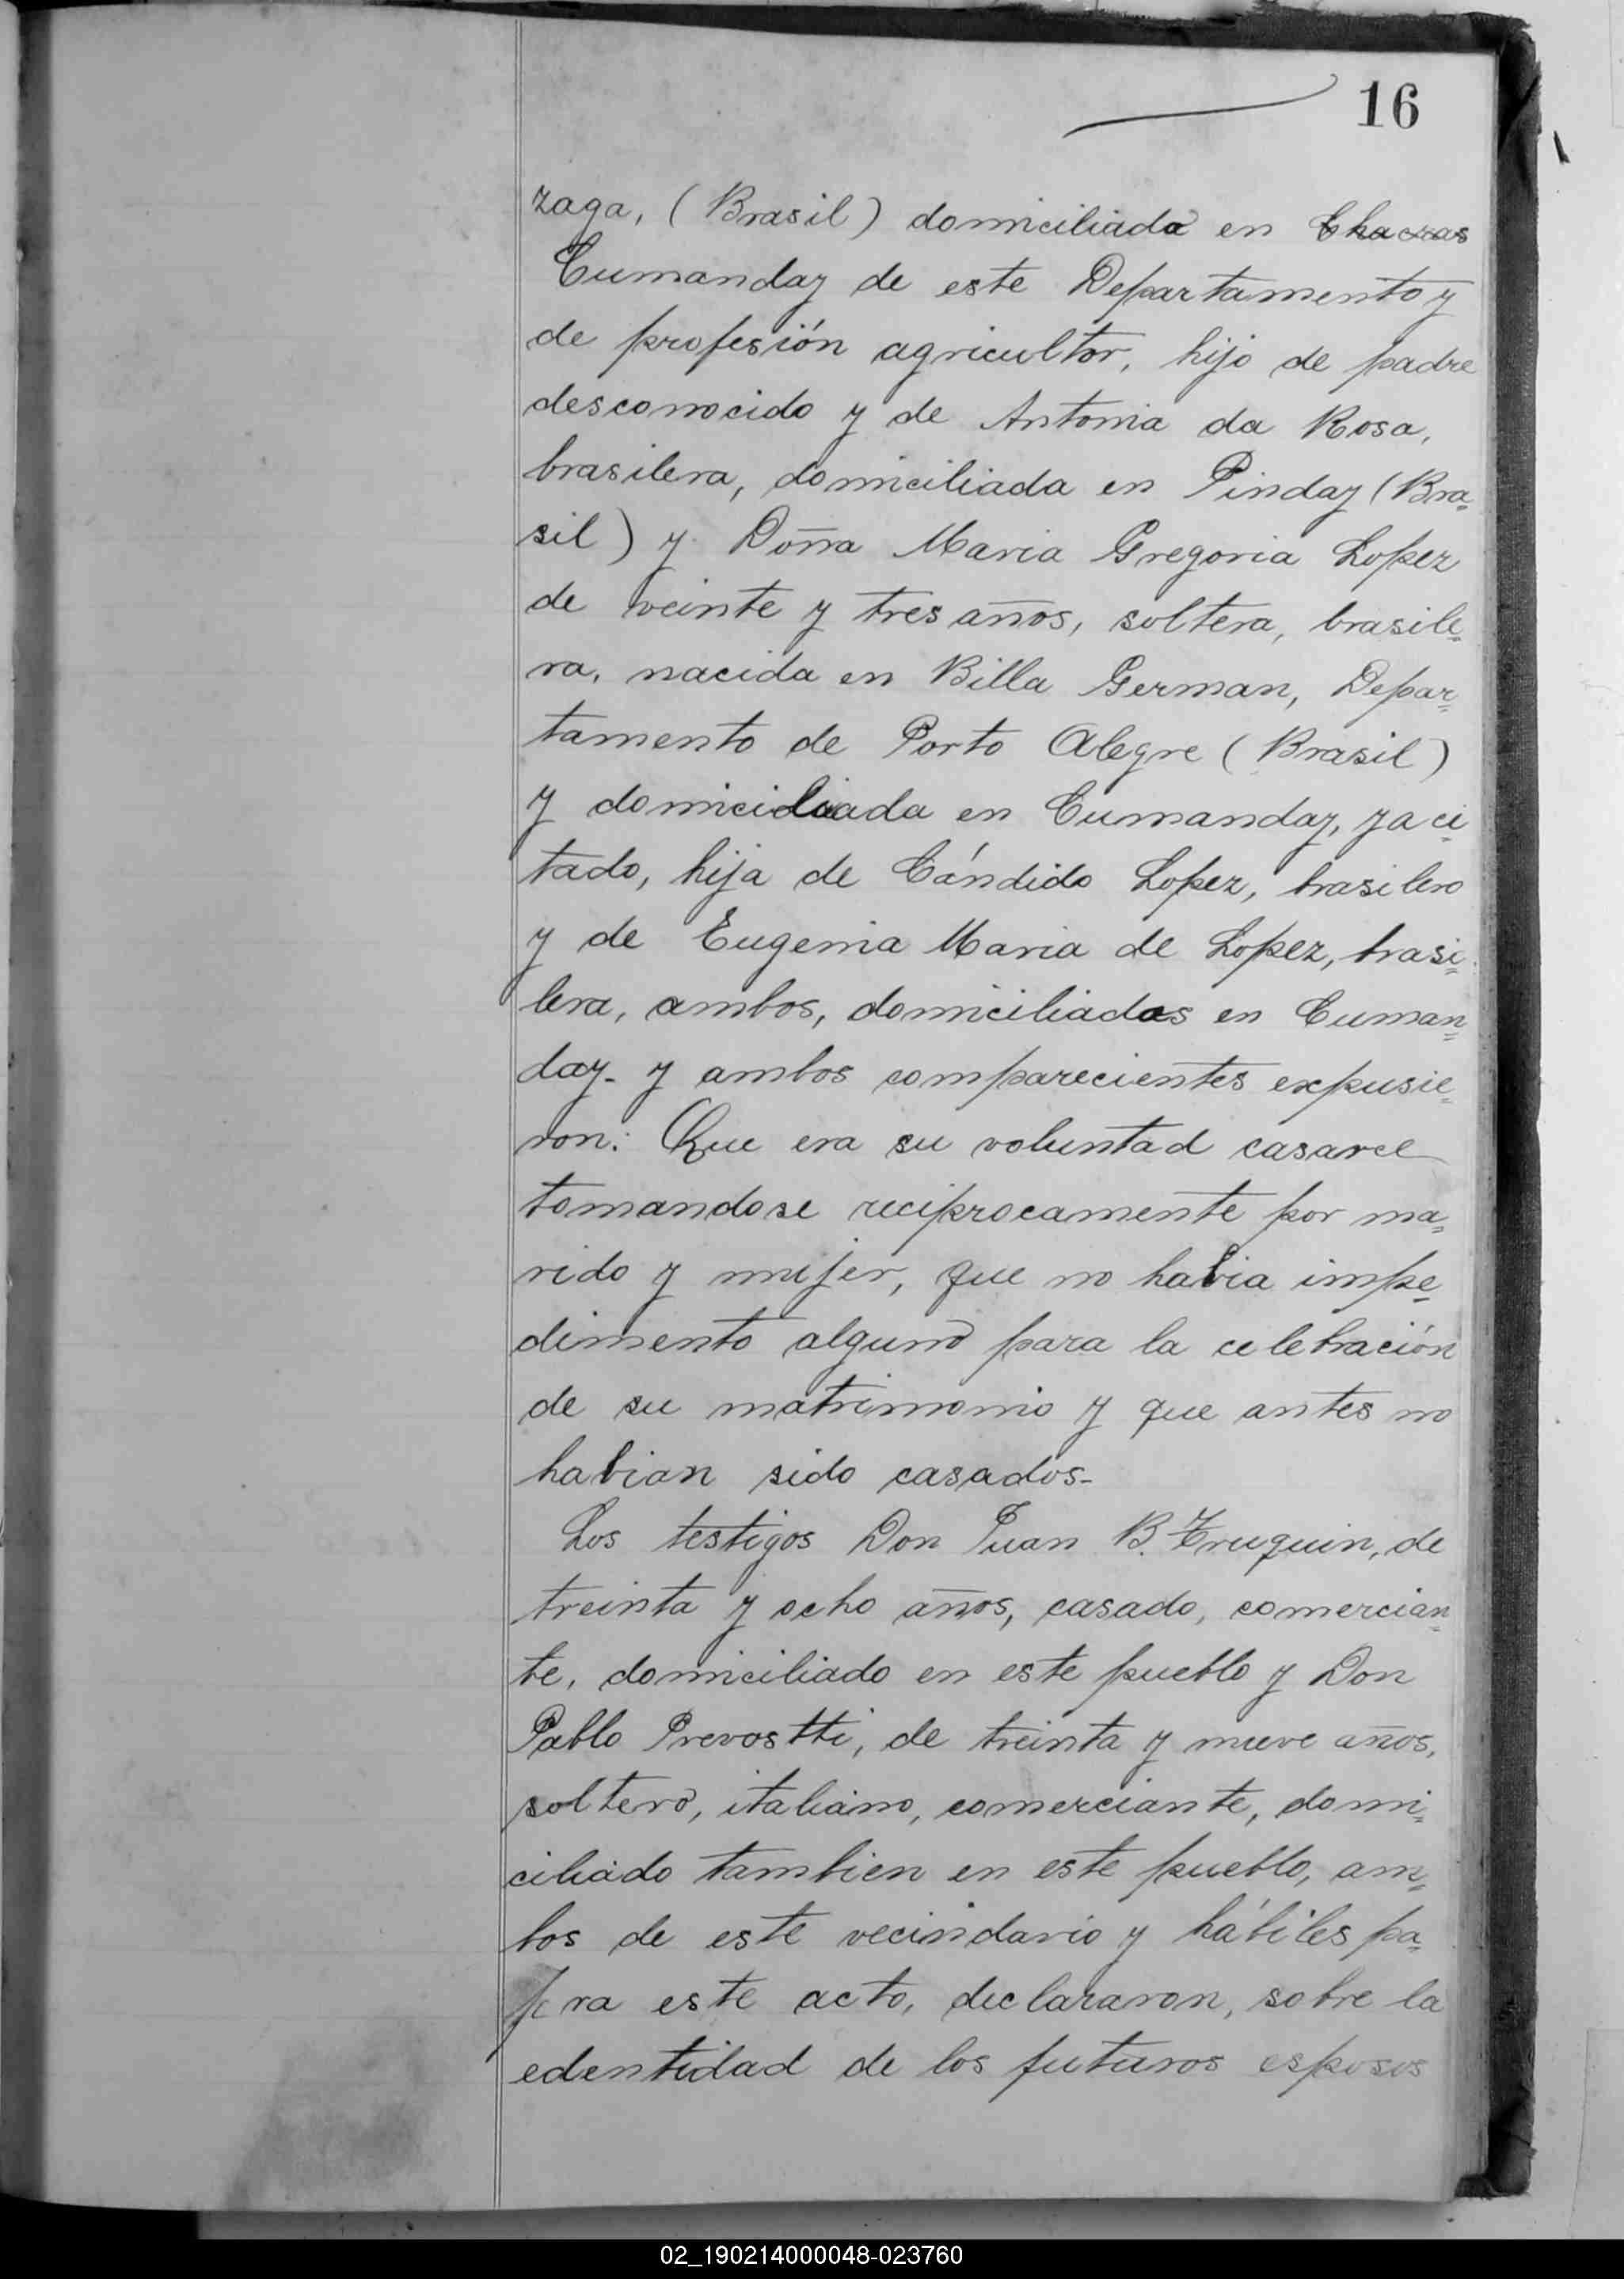 16
zaga, (Brasil) domiciliado en Chacras
Cumanday de este Departamento y
de profesión agricultor, hijo de padre
desconocido y de Antonia da Rosa,
brasilera, domiciliada en Pinday (Bra=
sil) y Doña Maria Gregoria Lopez
de veinte y tres años, soltera, brasile=
ra, nacida en Billa German, Depar=
tamento de Porto Alegre (Brasil)
y domiciliada en Cumanday, ya ci=
tado, hija de Cándido Lopez, brasilero
y de Eugenia Maria de Lopez, brasi=
lera, ambos, domiciliados en Cuman=
day- y ambos comparecientes expusie=
ron: Que era su voluntad casarce
tomandose reciprocamente por ma=
rido y mujer, que no habia impe=
dimento alguno para la celebración
de su matrimonio y que antes no
habian sido casados-
Los testigos Don Juan B. Truquin, de
treinta y ocho años, casado, comercian=
te, domiciliado en este pueblo y Don
Pablo Prevostti, de treinta y nueve años,
soltero, italiano, comerciante, domi=
ciliado tambien en este pueblo, am=
bos de este vecindario y hábiles pa=
ra este acto, declararon, sobre la
edentidad de los futuros esposos
02_190214000048-023760